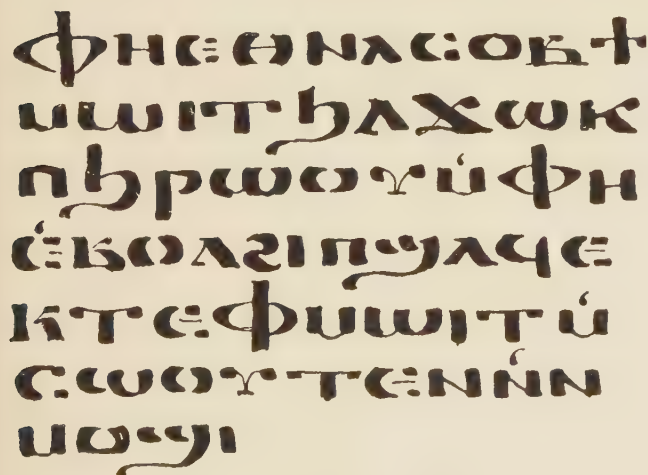 ⲫⲏⲉⲑⲛⲁⲥⲟⲃϯ
ⲙⲱⲓⲧϧⲁϫⲱⲕ
ⲡϧⲣⲱⲟⲩⲙ̀ⲫⲏ
ⲉ̀ⲃⲟⲗϩⲓⲡϣⲁϥⲉ
ⲕⲧⲉⲫⲙⲱⲓⲧⲙ̀
ⲥⲱⲟⲩⲧⲉⲛⲛ̀ⲛ
ⲙⲟϣⲓ